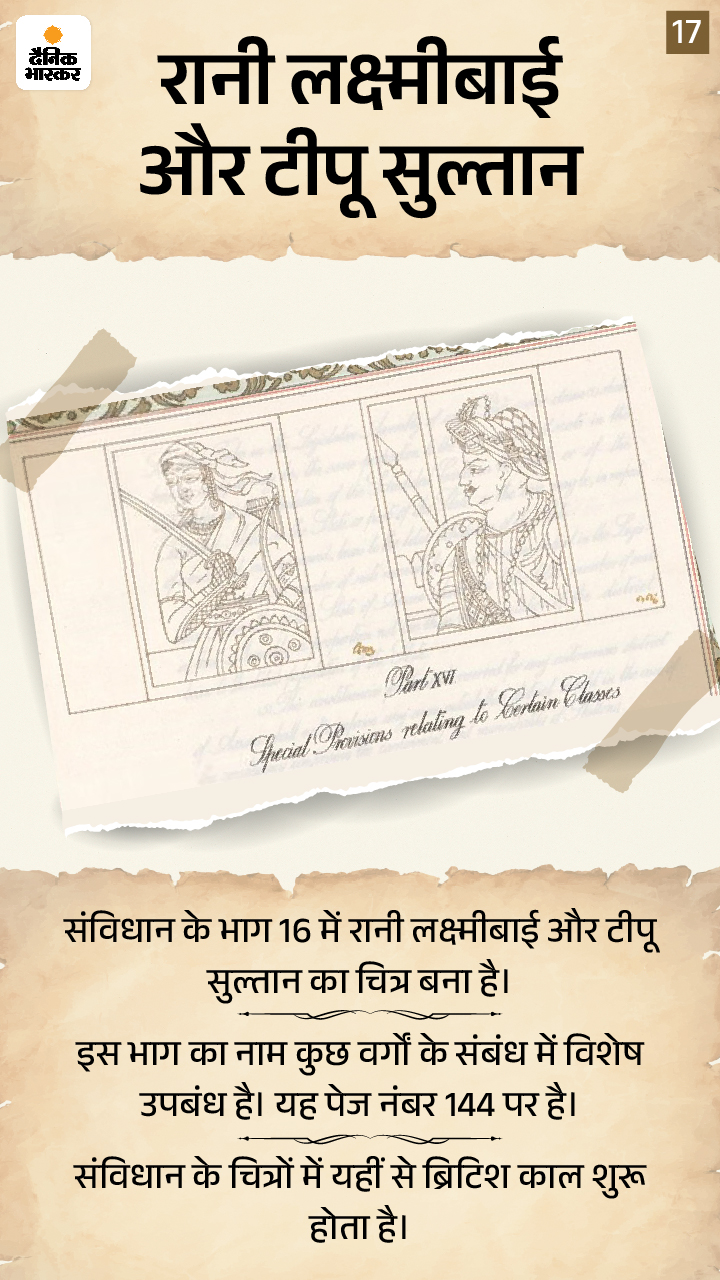 दैनिक
भास्कर
17
रानी लक्ष्मीबाई
और टीपू सुल्तान
Part XVI
Special Provisions relating to Certain Classes
संविधान के भाग 16 में रानी लक्ष्मीबाई और टीपू
सुल्तान का चित्र बना है।
इस भाग का नाम कुछ वर्गों के संबंध में विशेष
उपबंध है। यह पेज नंबर 144 पर है।
संविधान के चित्रों में यहीं से ब्रिटिश काल शुरू
होता है।